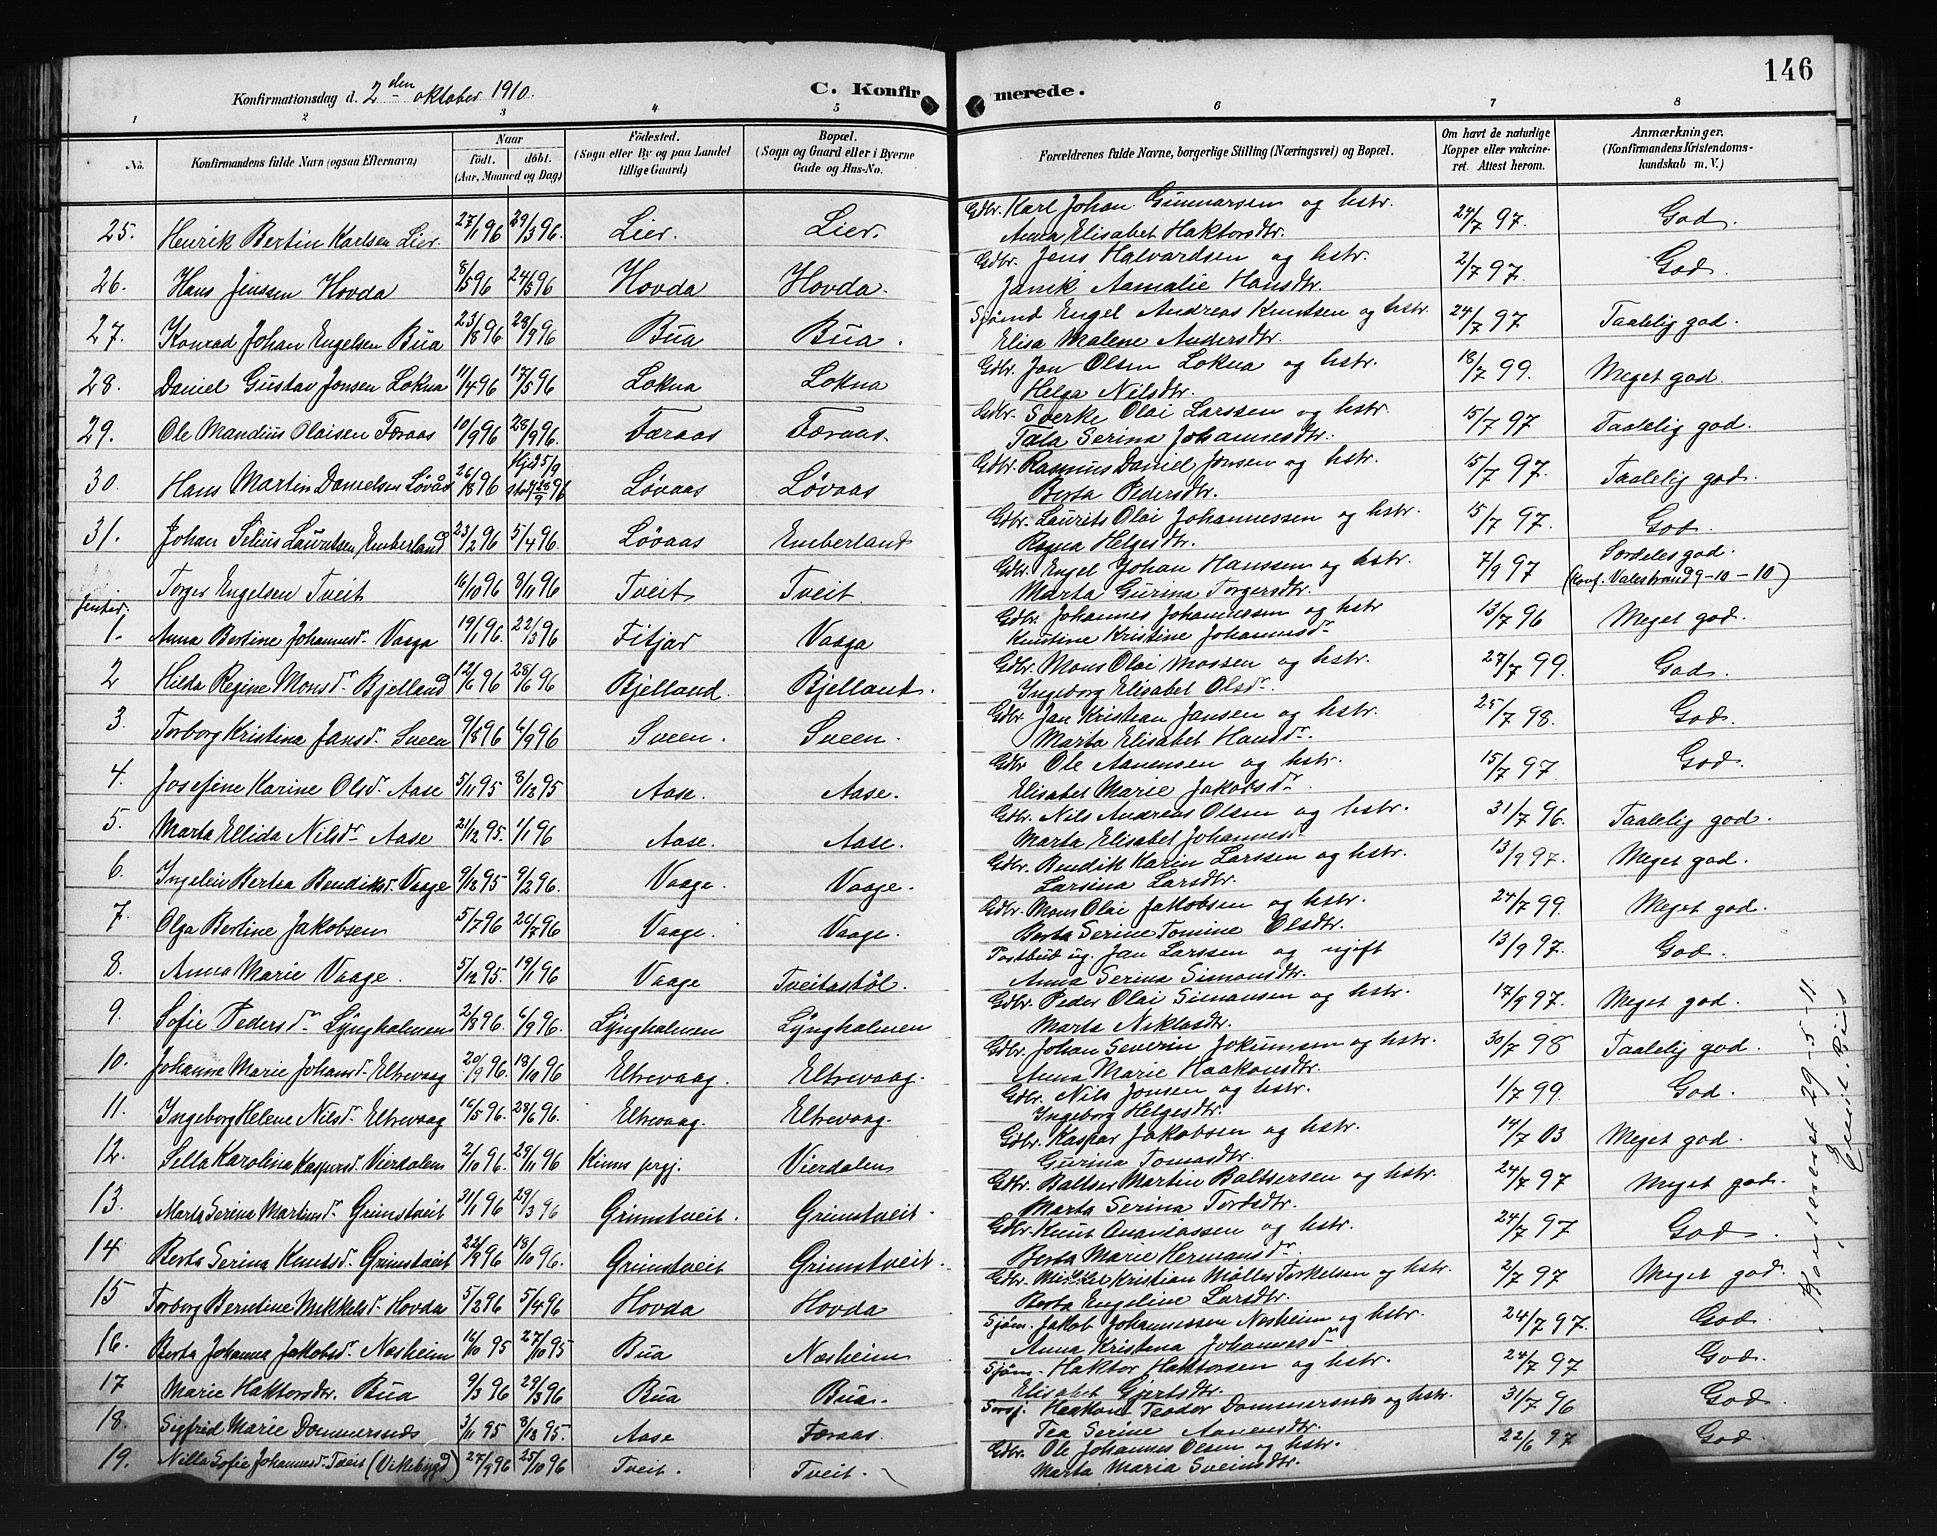 146
Konfirmationsdag d. 2den oktober 1910.
C. Konfirmerede.
1 2 3 4 5 6 7 8
No. Konfirmandens fulde Navn (ogsaa Efternavn) Naar født. døbt. (Aar, Maaned og Dag) Fødested. (Sogn eller By og paa Landet tillige Gaard) Bopæl. (Sogn og Gaard eller i Byerne Gade og Hus-No. Forældrenes fulde Navne, borgerlige Stilling (Næringsvei) og Bopæl. Om havt de naturlige Kopper eller vakcineret. Attest herom. Anmærkninger. (Konfirmandens Kristendomskundskab m. V.)
25. Henrik Bertin Karlsen Lier 27/1 96 29/3 96. Lier. Lier. Gdbr. Karl Johan Gunnarsen og hstr. Anna Elisabet Haktorsdtr. 24/7 97. God.
26. Hans Jenssen Hovda 8/5 96 24/5 96 Hovda Hovda. Gdbr. Jens Halvardsen og hstr. Janik Aamalie Hansdtr. 2/7 97. God.
27. Konrad Johan Engelsen Bua 23/8 96 28/9 96 Bua Bua. Sjømd Engel Andreas Knutsen og hstr. Elisa Malene Andersdtr. 24/7 97 Taalelig god.
28. Daniel Gustav Jonsen Lokna 11/4 96 17/5 96 Lokna Lokna Gdbr. Jon Olsen Lokna og hstr. Helga Nilsdtr. 18/7 99. Meget god.
29. Ole Mandius Olaisen Færaas 10/9 96 28/9 96. Færaas Færaas. Gdbr. Sverke Olai Larssen og hstr Tala Serina Johannesdtr. 15/7 97 Taalelig god.
30. Hans Martin Danielsen Løvås 26/8 96 Hjd 5/9 96 Løvaas Løvaas Gdbr. Rasmus Daniel Jonsen og hstr. Berta Pedersdtr. 15/7 97. Taalelig god.
31. Johan Selius Lauritsen Emberland 23/2 96 5/4 96. Løvaas Emberland Gdbr. Laurits Olai Johannessen og hstr. Ragna Helgesdtr. 15/7 97. God.
Torger Engelsen Tveit 16/10 96 8/11 96 Tveit Tveit. Gdbr. Engel Johan Hanssen og hstr. Marta Gurina Torgersdtr. 7/9 97 Særdeles god. (Konf. Valestrand 9-10-10)
Jenter.
1. Anna Bertine Johannesdr. Vaaga 19/1 96. 22/3 96 Fitjar Vaaga Gdbr. Johannes Johannessen og hstr Knutine Kristine Johannesdr 13/7 96 Meget god.
2 Hilda Regine Monsdr. Bjelland 12/6 96 28/6 96 Bjelland. Bjelland. Gdbr. Mons Olai Monsen og hstr. Ingeborg Elisabet Olsdr. 27/7 99. God.
3. Torborg Kristina Jansdr. Sveen 9/8 96 6/9 96 Sveen. Sveen. Gdbr Jan Kristian Jansen og hstr. Marta Elisabet Hansdr. 25/7 98. God.
4. Josefine Karine Olsdr. Aase 5/11 95 8/12 95 Aase. Aase. Gdbr Ole Aanensen og hstr. Elisabet Marie Jakobsdr. 15/7 97. God.
5. Marta Ellida Nilsdr Aase 21/12 95. 1/1 96 Aase. Aase. Gdbr. Nils Andreas Olsen og hstr. Marta Elisabet Johannesd. 31/7 96. Taalelig god.
6. Ingelin Bertea Bendiksd. Vaage 9/12 95 9/2 96. Vaage. Vaage. Gdbr. Bendik Karin Larssen og hstr. Larsina Larsdtr. 13/9 97. Meget god.
7. Olga Bertine Jakobsen 5/7 96 26/7 96 Vaage. Vaage. Gdbr. Mons Olai Jakobsen og hstr. Berta Serine Tomine Olsdtr. 24/7 99. Meget god.
8. Anna Marie Vaage. 5/12 95. 19/1 96 Vaage Tveitastøl. Postbud ug. Jan Larssen og ugift Anna Serina Simonsdtr. 13/9 97. God.
9. Sofie Pedersdr Lyngholmen 2/8 96. 6/9 96. Lyngholmen Lyngholmen Gdbr. Peder Olai Simonsen og hstr. Marta Niklasdtr. 17/9 97. Meget god.
10. Johanna Marie Johansd. Eltrevaag 20/9 96. 18/10 96 Eltrevaag. Eltrevaag. Gdbr. Johan Severin Jokumsen og hstr. Anna Marie Haakonsdtr. 30/7 98 Taalelig god.
11. Ingeborg Helene Nilsdr. Eltrevaag 16/5 96. 28/6 96. Eltrevaag. Eltrevaag. Gdbr. Nils Jonsen og hstr. Ingeborg Helgesdtr. 1/7 99. God.
12. Sella Karolina Kaspersd. Vierdalen 2/10 96. 29/11 96 Kinns prgj. Vierdalen Gdbr. Kaspar Jakobsen og hstr. Gurina Tomasdtr. 14/7 03 Meget god.
13. Marta Serina Martinsdr Grimstveit 31/1 96 29/3 96 Grimstveit. Grimstveit. Gdbr. Baltser Martin Baltsersen og hstr. Marta Serina Tordsdtr. 24/7 97 Meget god.
14 Berta Serina Knutsd. Grimstveit 22/9 96 18/10 96. Grimstveit Grimstveit. Gdbr. Knut Ananiassen og hstr. Berta Marie Hermansdr. 24/7 97 God.
15 Torborg Berntine Mikkelsd. Hovda 5/2 96 5/4 96 Hovda Hovda Gdbr. Mikkel Kristian Møller Torkelsen og hstr. Berta Engeline Larsdtr. 2/7 97 Meget god.
16. Berta Johanna Jakobsd. Næsheim 16/10 95 27/10 95 Bua Næsheim Sjøm. Jakob Johannessen Nesheim og hstr. Anna Kristina Johannesdr 24/7 97. God.
17 Marie Haktorsdtr. Bua 9/3 96 29/3 96 Bua Bua. Sjøm. Haktor Haktorsen og hstr. Elisabet Gjertsdtr. 24/7 97 God.
18. Sigfrid Marie Dommersnes 3/11 95 8/12 95. Aase Færaas. Haakon Teodor Dommersnes og hstr. Tea Serine Aanensdtr. 31/7 96 God.
19. Nilla Sofie Johannesd. Tveit (Vikebygd) 27/9 96 25/10 96 Tveit. Tveit. Gdbr. Ole Johannes Olsen og hstr. Marta Maria Sveinsdtr. 22/6 97 God.
29-5-11.